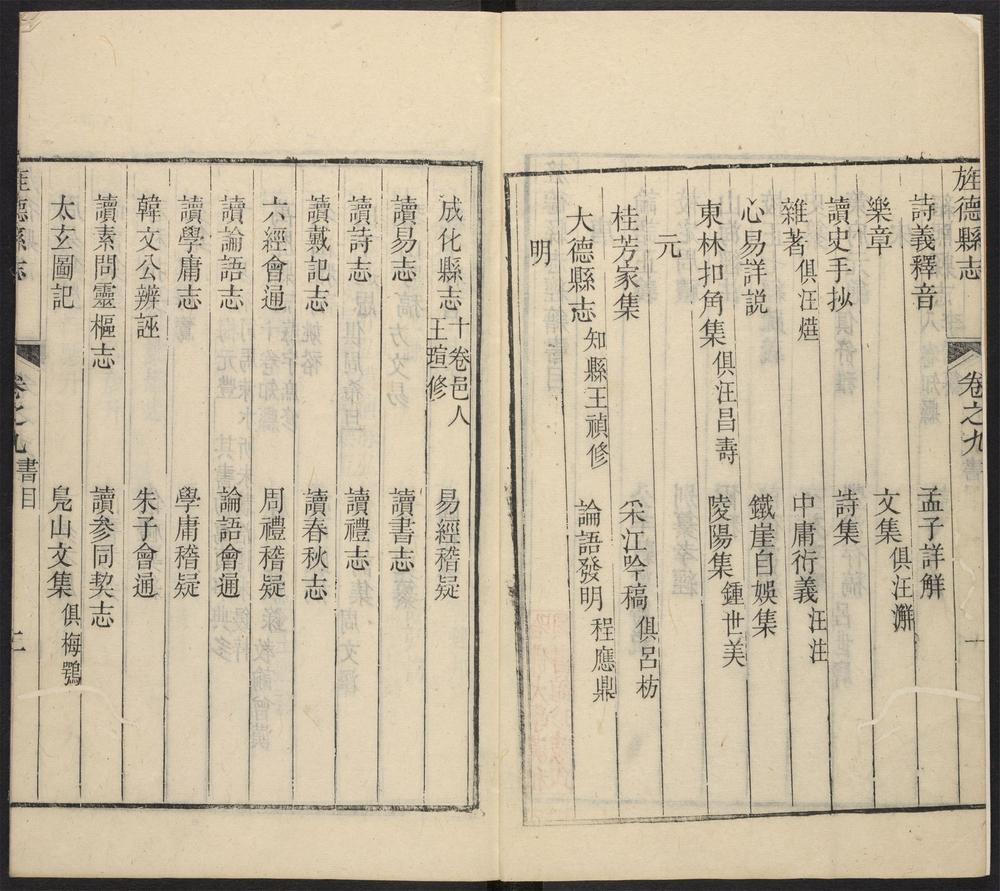 旌德縣志 卷之九 書
詩義釋音 孟子詳解
樂章 文集俱汪澥
讀史手抄 詩集
雜著俱汪㷸 中庸衍義汪注
心易詳説 鐵崖自娛集
東林扣角集俱汪昌壽 陵陽集鍾世美
元
桂芳家集 采江吟稿俱呂枋
大德縣志知縣王禎修 論語發明程應鼎
明
成化縣志十卷邑人王瑄修 易經稽疑
讀易志 讀書志
讀詩志 讀禮志
讀戴記志 讀春秋志
六經會通 周禮稽疑
讀論語志 論語會通
讀學庸志 學庸稽疑
韓文公辨誣 朱子會通
讀素問靈樞志 讀參同契志
太玄圖記 凫山文集俱梅鶚
旌德縣志 卷之九 書目